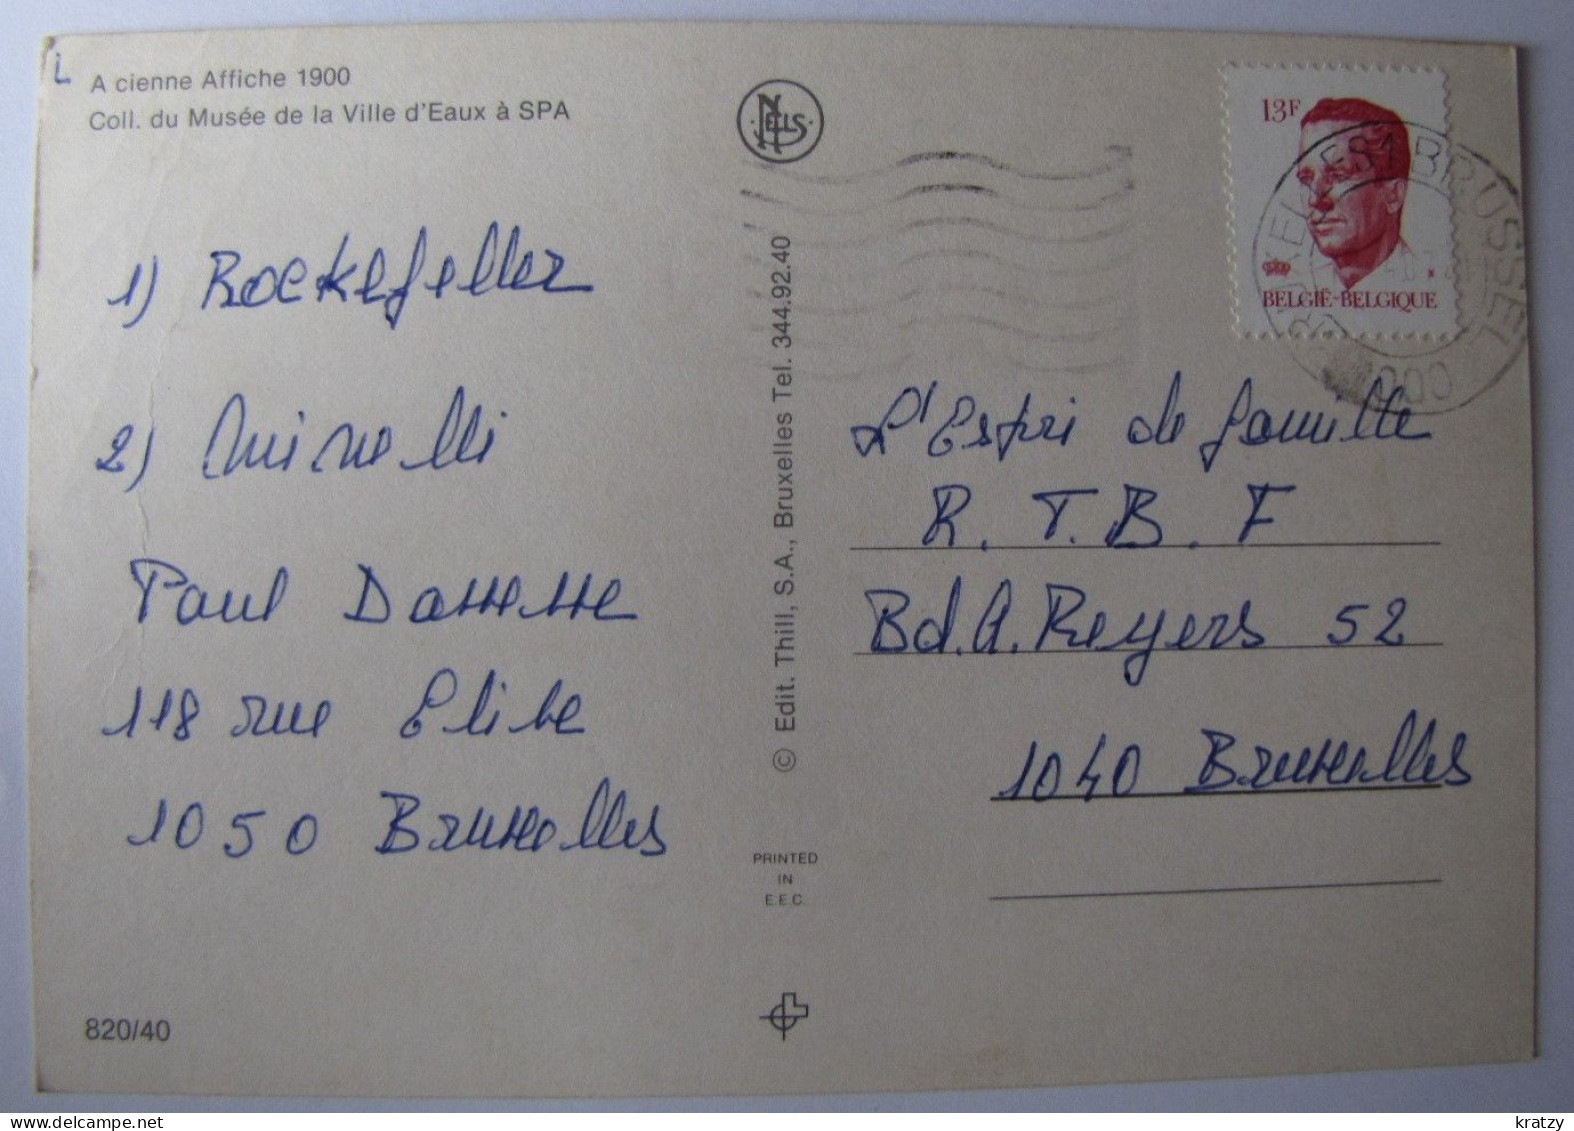 L
A cienne Affiche 1900
Coll. du Musée de la Ville d'Eaux à SPA
1) Rockefeller
2) Minnelli
Paul
118 rue Elise
1050 Bruxelles
820/40
NELLS
© Edit. Thill, S.A., Bruxelles Tel. 344.92.40
PRINTED
IN
E.E.C.
13F
BELGIË-BELGIQUE
BRUXELLES 1 BRUSSEL
1000
L'Espri de famille
R.T.B.F
Bd.A.Reyers 52
1040 Bruxelles
www.delcampe.net
kratzy